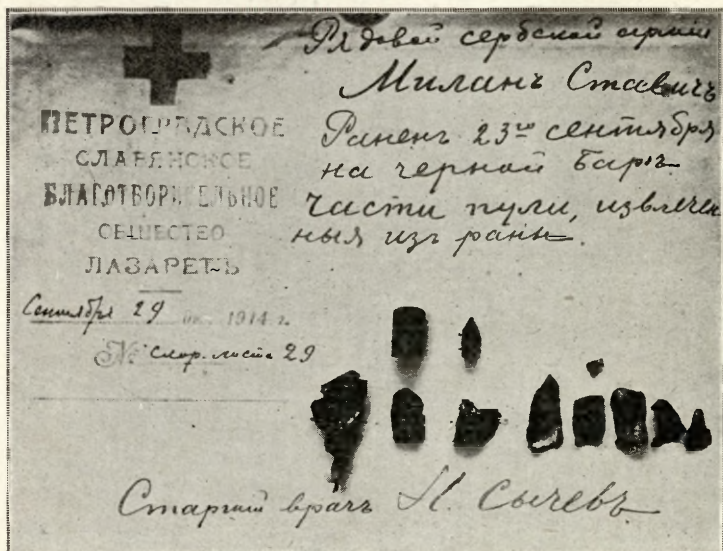 ПЕТРОГРАДСКОЕ
СЛАВЯНСКОЕ
БЛАГОТВОРИТЕЛЬНОЕ
ОБЩЕСТВО
ЛАЗАРЕТЪ
Сентября 29 1914 г.
№ скор. листа 29
Рядовой сербской армии
Миланъ Ставичъ
Раненъ 23го сентября
на черной Баръ
части пули, извлечен
ныя изъ раны.
Старший врачъ Н. Сычевъ